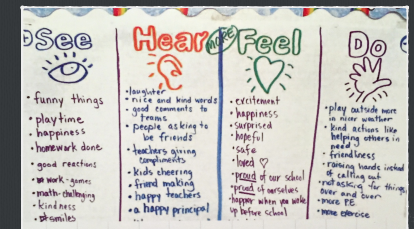 See
• funny things
• playtime
• happiness
• homework done
• good reactions
• work-games
• math-challenging
• kindness
• smiles
Hear
• laughter
• nice and kind words
• good comments to
teams
• people asking to
be friends
• teachers giving
compliments
• kids cheering
• friend making
• happy teachers
• a happy principal
MORE
Feel
• excitement
• happiness
• surprised
• hopeful
• safe
• loved ♡
• proud of our school
• proud of ourselves
• happier when you wake
up before school
Do
• play outside more
in nicer weather
• kind actions like
helping others in
need
• friendliness
• raising hands instead
of calling out
• not asking for things
over and over
• more P.E.
• more exercise